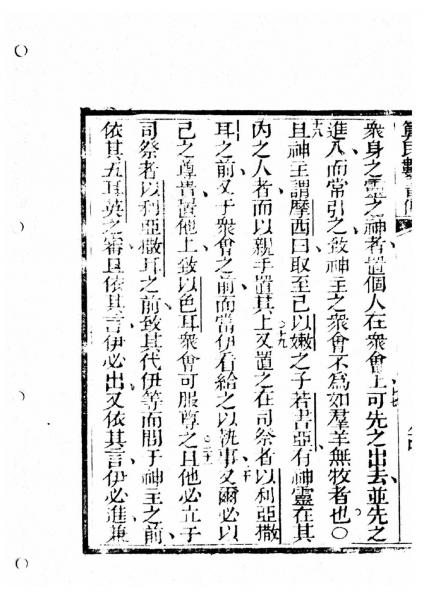 算民數
衆身之靈之神者置個人在衆會上可十七先之出去並先之
進入而常引之致神主之衆會不為如羣羊無牧者也〇
十八且神主謂摩西曰取至己以嫩之子若書亞有神靈在其
內之人者而以親手置其上十九又置之在司祭者以利亞撒
耳之前又于衆會之前而當伊看給之以執事二十又爾必以
己之尊貴置他上致以色耳衆會可服尊之二十一且他必立于
司祭者以利亞撒耳之前致其代伊等而問于神主之前
依其五耳英之審且依其言伊必出又依其言伊必進兼